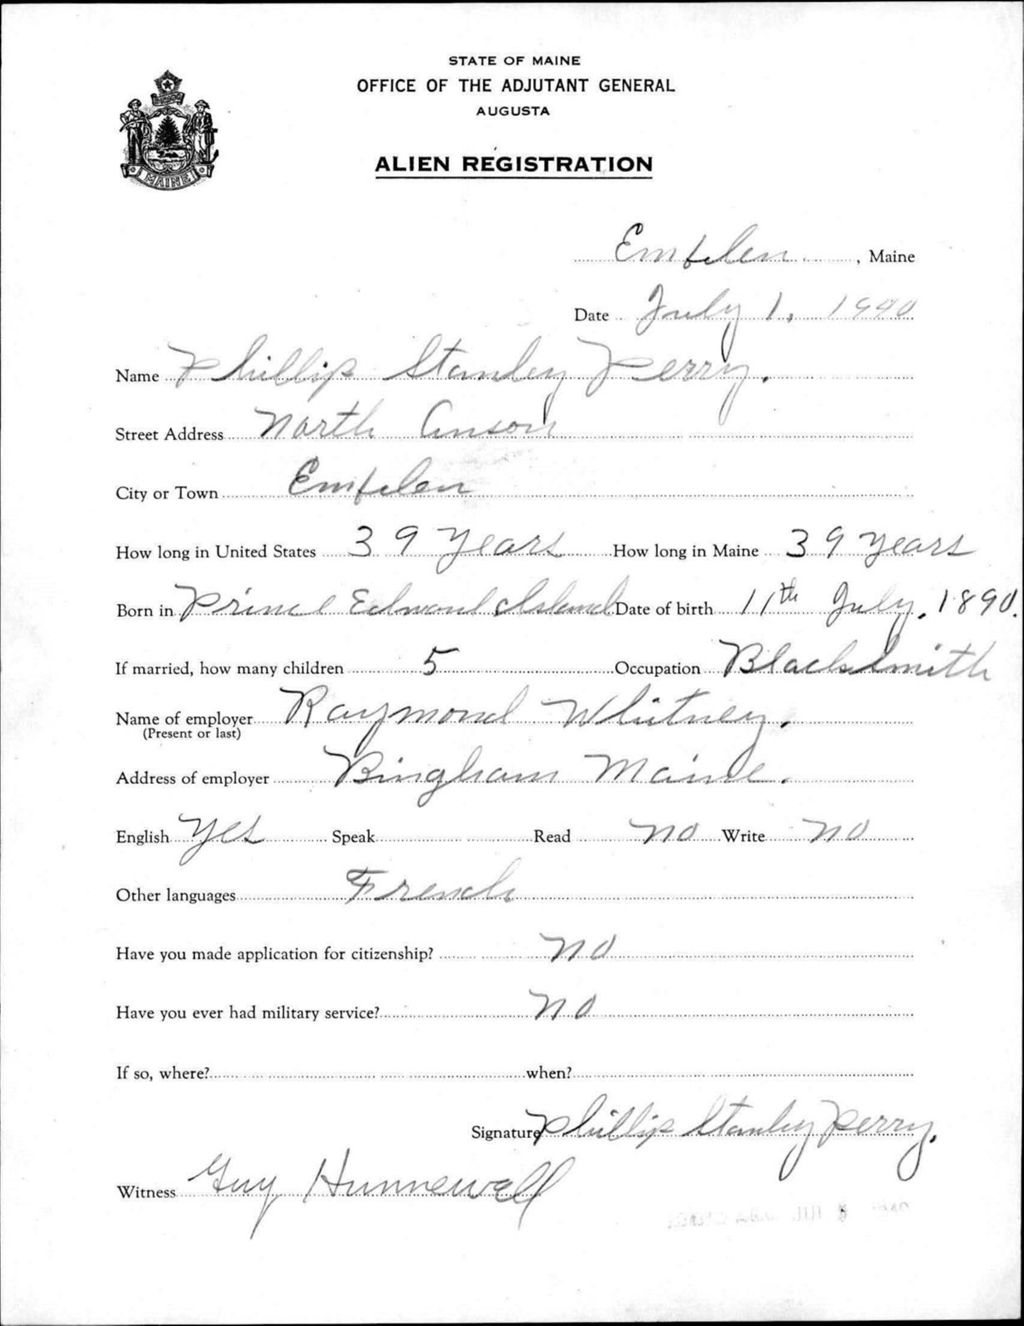 STATE OF MAINE
OFFICE OF THE ADJUTANT GENERAL
AUGUSTA
ALIEN REGISTRATION
MAINE
Embden, Maine
Date July 1, 1940
Name Phillip Stanley Perry.
Street Address North Anson
City or Town Embden
How long in United States 39 years How long in Maine 39 years
Born in Prince Edward Island Date of birth 11th July, 1890.
If married, how many children 5 Occupation Blacksmith
Name of employer Raymond Whitney.
(Present or last)
Address of employer Bingham Maine.
English Yes Speak Read no Write no
Other languages French
Have you made application for citizenship? no
Have you ever had military service? no
If so, where? when?
Signature Phillip Stanley Perry.
Witness Guy Hunnewell